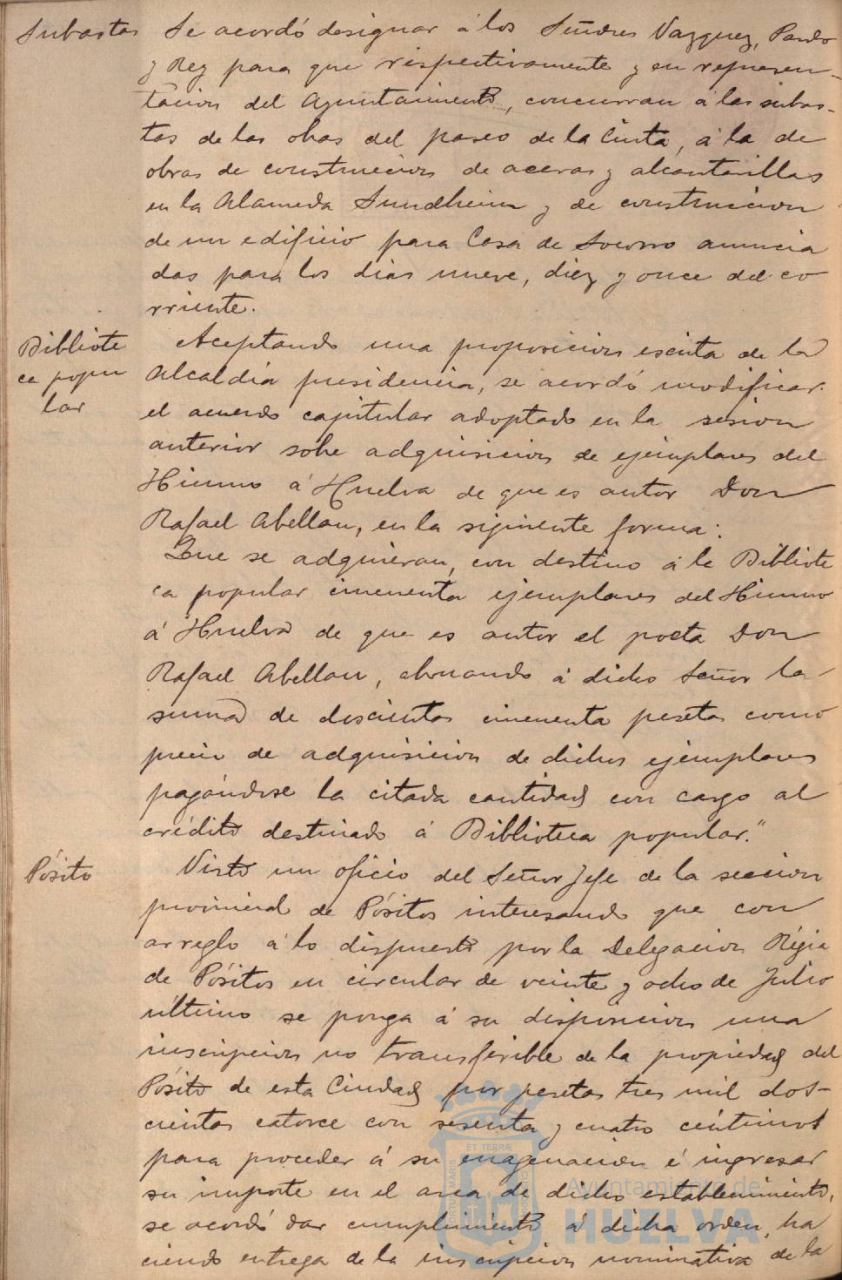 Subastas Se acordó designar á los Señores Vazquez, Pardo
y Rey para que respectivamente y en represen-
tacion del Ayuntamiento, concurran á las subas-
tas de las obras del paseo de la Cinta, á la de
obras de construccion de aceras y alcantarillas
en la Alameda Sundheim y de construccion
de un edificio para Casa de Socorro anuncia
das para los dias nueve, diez y once del co
rriente.
Bibliote
ca popu
lar
Aceptando una proposicion escrita de la
Alcaldia presidencia, se acordó modificar
el acuerdo capitular adoptado en la sesion
anterior sobre adquisicion de ejemplares del
Himno á Huelva de que es autor Don
Rafael Abellan, en la siguiente forma:
Que se adquieran, con destino á la Bibliote
ca popular cincuenta ejemplares del Himno
á Huelva de que es autor el poeta Don
Rafael Abellan, abonando á dicho Señor la
suma de doscientas cincuenta pesetas como
precio de adquisicion de dichos ejemplares
pagándose la citada cantidad con cargo al
crédito destinado á Biblioteca popular."
Pósito Visto un oficio del Señor Jefe de la seccion
provincial de Pósitos interesando que con
arreglo á lo dispuesto por la Delegacion Régia
de Pósitos en circular de veinte y ocho de Julio
último se ponga á su disposicion una
inscripcion no transferible de la propiedad del
Pósito de esta Ciudad por pesetas tres mil dos-
cientas catorce con sesenta y cuatro céntimos
para proceder á su enagenacion é ingresar
su importe en el arca de dicho establecimiento,
se acordó dar cumplimiento á dicha orden, ha
ciendo entrega de la inscripcion nominativa de la
Ayuntamiento de
HUELVA